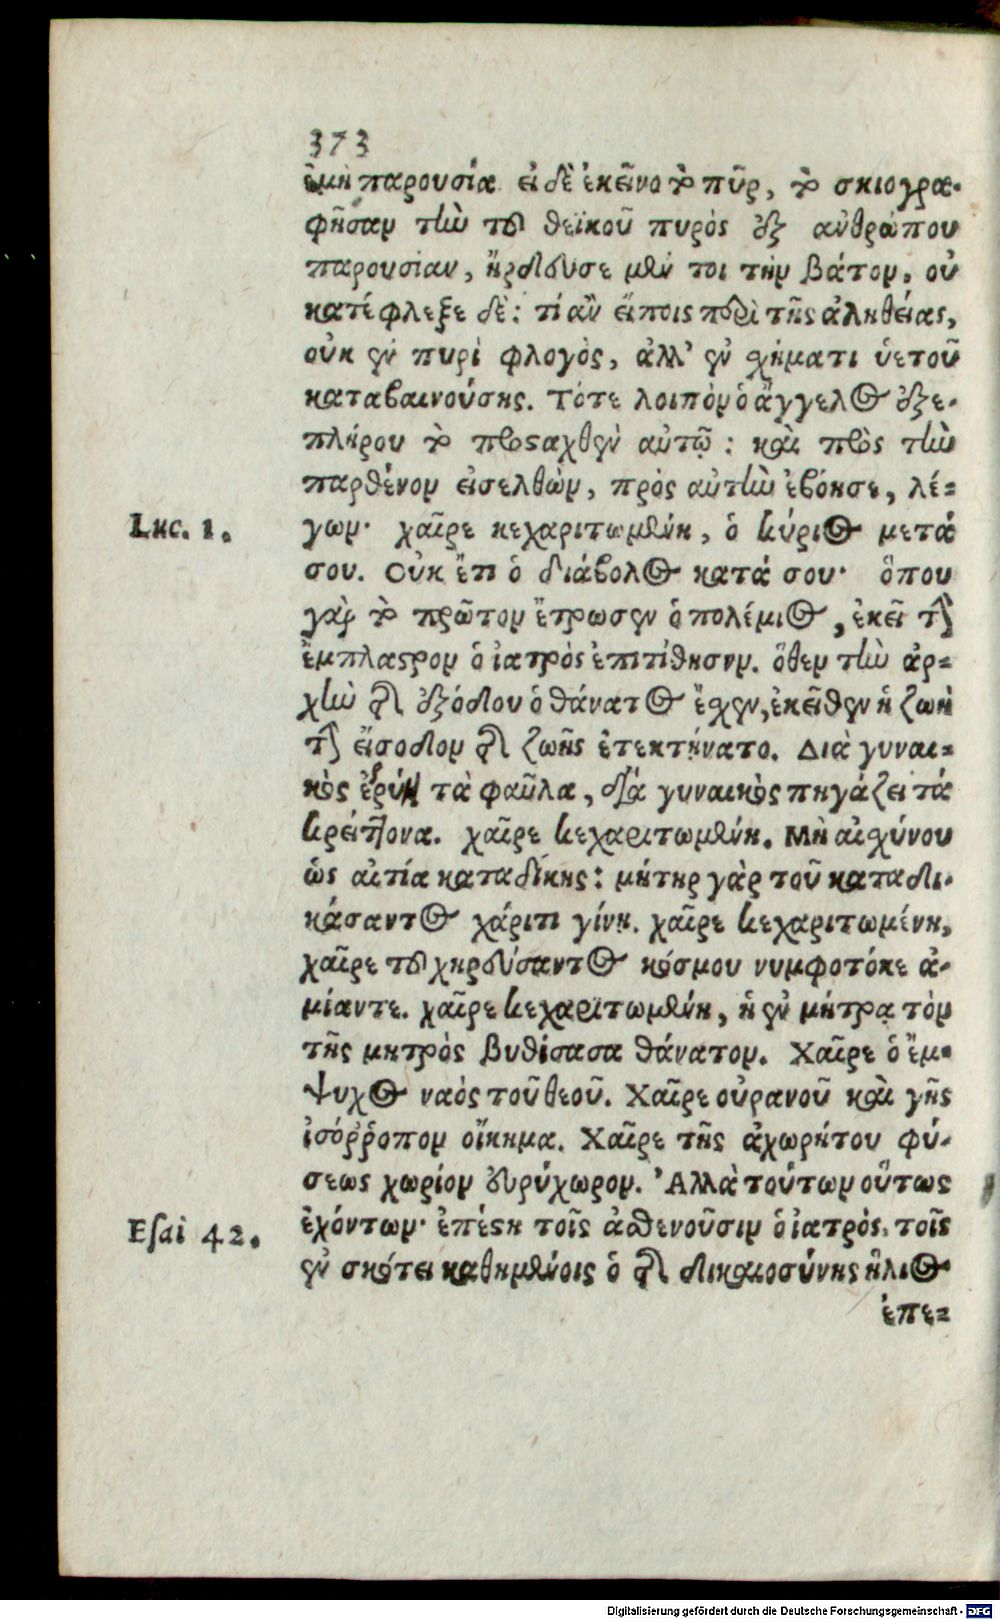 373
ἐμὴ παρουσία. εἰ δὲ ἐκεῖνο τὸ πῦρ, τὸ σκιογρα-
φῆσαν τὴν τοῦ θεϊκοῦ πυρὸς ἐξ ανθρώπου
παρουσίαν, ἤρδευσε μέν τοι τὴν βάτον, οὐ
κατέφλεξε δέ: τί ἂν εἴποις περὶ τῆς ἀληθείας,
οὐκ ἐν πυρὶ φλογὸς, ἀλλ' ἐν σχήματι ὑετοῦ
καταβαινούσης. Τότε λοιπὸν ὁ ἄγγελος ἐξε-
πλήρου τὸ προσταχθὲν αὐτῷ: καὶ πρὸς τὴν
παρθένον εἰσελθὼν, πρὸς αὐτὴν ἐβόησε, λέ-
Luc. 1. γων· χαῖρε κεχαριτωμένη, ὁ κύριος μετά
σου. Οὐκ ἔτι ὁ διάβολος κατά σου· ὅπου
γὰρ τὸ πρῶτον ἔτρωσεν ὁ πολέμιος, ἐκεῖ τὴν
ἔμπλαστρον ὁ ἰατρὸς ἐπιτίθησιν. ὅθεν τὴν ἀρ-
χὴν τῆς ἐξόδου ὁ θάνατος ἔσχεν, ἐκεῖθεν ἡ ζωὴ
τὴν εἴσοδον τῆς ζωῆς ἐτεκτήνατο. Διὰ γυναι-
κὸς ἐρύη τὰ φαῦλα, διὰ γυναικὸς πηγάζει τὰ
κρείττονα. χαῖρε κεχαριτωμένη. Μὴ αἰσχύνου
ὡς αἰτία καταδίκης: μήτηρ γὰρ τοῦ καταδι-
κάσαντος χάριτι γίνῃ. χαῖρε κεχαριτωμένη,
χαῖρε τοῦ χηρεύσαντος κόσμου νυμφοτόκε ἀ-
μίαντε. χαῖρε κεχαριτωμένη, ἡ ἐν μήτρᾳ τὸν
τῆς μητρὸς βυθίσασα θάνατον. Χαῖρε ὁ ἔμ-
ψυχος ναὸς τοῦ θεοῦ. Χαῖρε οὐρανοῦ καὶ γῆς
ἰσόῤῥοπον οἴκημα. Χαῖρε τῆς ἀχωρήτου φύ-
σεως χωρίον εὐρύχωρον. Ἀλλὰ τούτων οὕτως
Esai 42. ἐχόντων· ἐπέστη τοῖς ἀσθενοῦσιν ὁ ἰατρὸς, τοῖς
ἐν σκότει καθημένοις ὁ τῆς δικαιοσύνης ἥλιος
ἐπε-
Digitalisierung gefördert durch die Deutsche Forschungsgemeinschaft - DFG